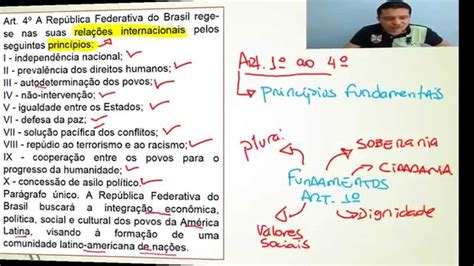 Art. 4º A República Federativa do Brasil rege-
se nas suas relações internacionais pelos
seguintes princípios:
I - independência nacional;
II - prevalência dos direitos humanos;
III - autodeterminação dos povos;
IV - não-intervenção;
V - igualdade entre os Estados;
VI - defesa da paz;
VII - solução pacífica dos conflitos;
VIII - repúdio ao terrorismo e ao racismo;
IX - cooperação entre os povos para o
progresso da humanidade;
X - concessão de asilo político.
Parágrafo único. A República Federativa do
Brasil buscará a integração econômica,
política, social e cultural dos povos da América
Latina, visando à formação de uma
comunidade latino-americana de nações.
Art. 1º ao 4º
Princípios Fundamentais
plura
SOBERANIA
CIDADANIA
FUNDAMENTOS
ART. 1º
Dignidade
Valores
Sociais